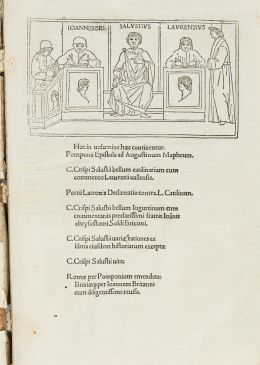 IOANNES BRI. SALVSTIVS LAVRENTIVS
Hoc in uolumine hæc continentur.
Pomponii Epistola ad Augustinum Mapheum.
C. Crispi Salustii bellum catilinarium cum
commento Laurentii uallensis.
Portii Latronis Declamatio contra. L. Catilinam.
C. Crispi Salustii bellum Iugurtinum cum
commentariis preclarissimi fratris Ioānis
chrysostomi Soldi Brixiani.
C. Crispi Salustii uariæ orationes ex
libris eiusdem historiarum exceptæ
C. Crispi Salustii uita:
Romæ per Pomponium emendata:
Brixiæqȝ per Ioannem Britanni
cum diligentissime reuisa.